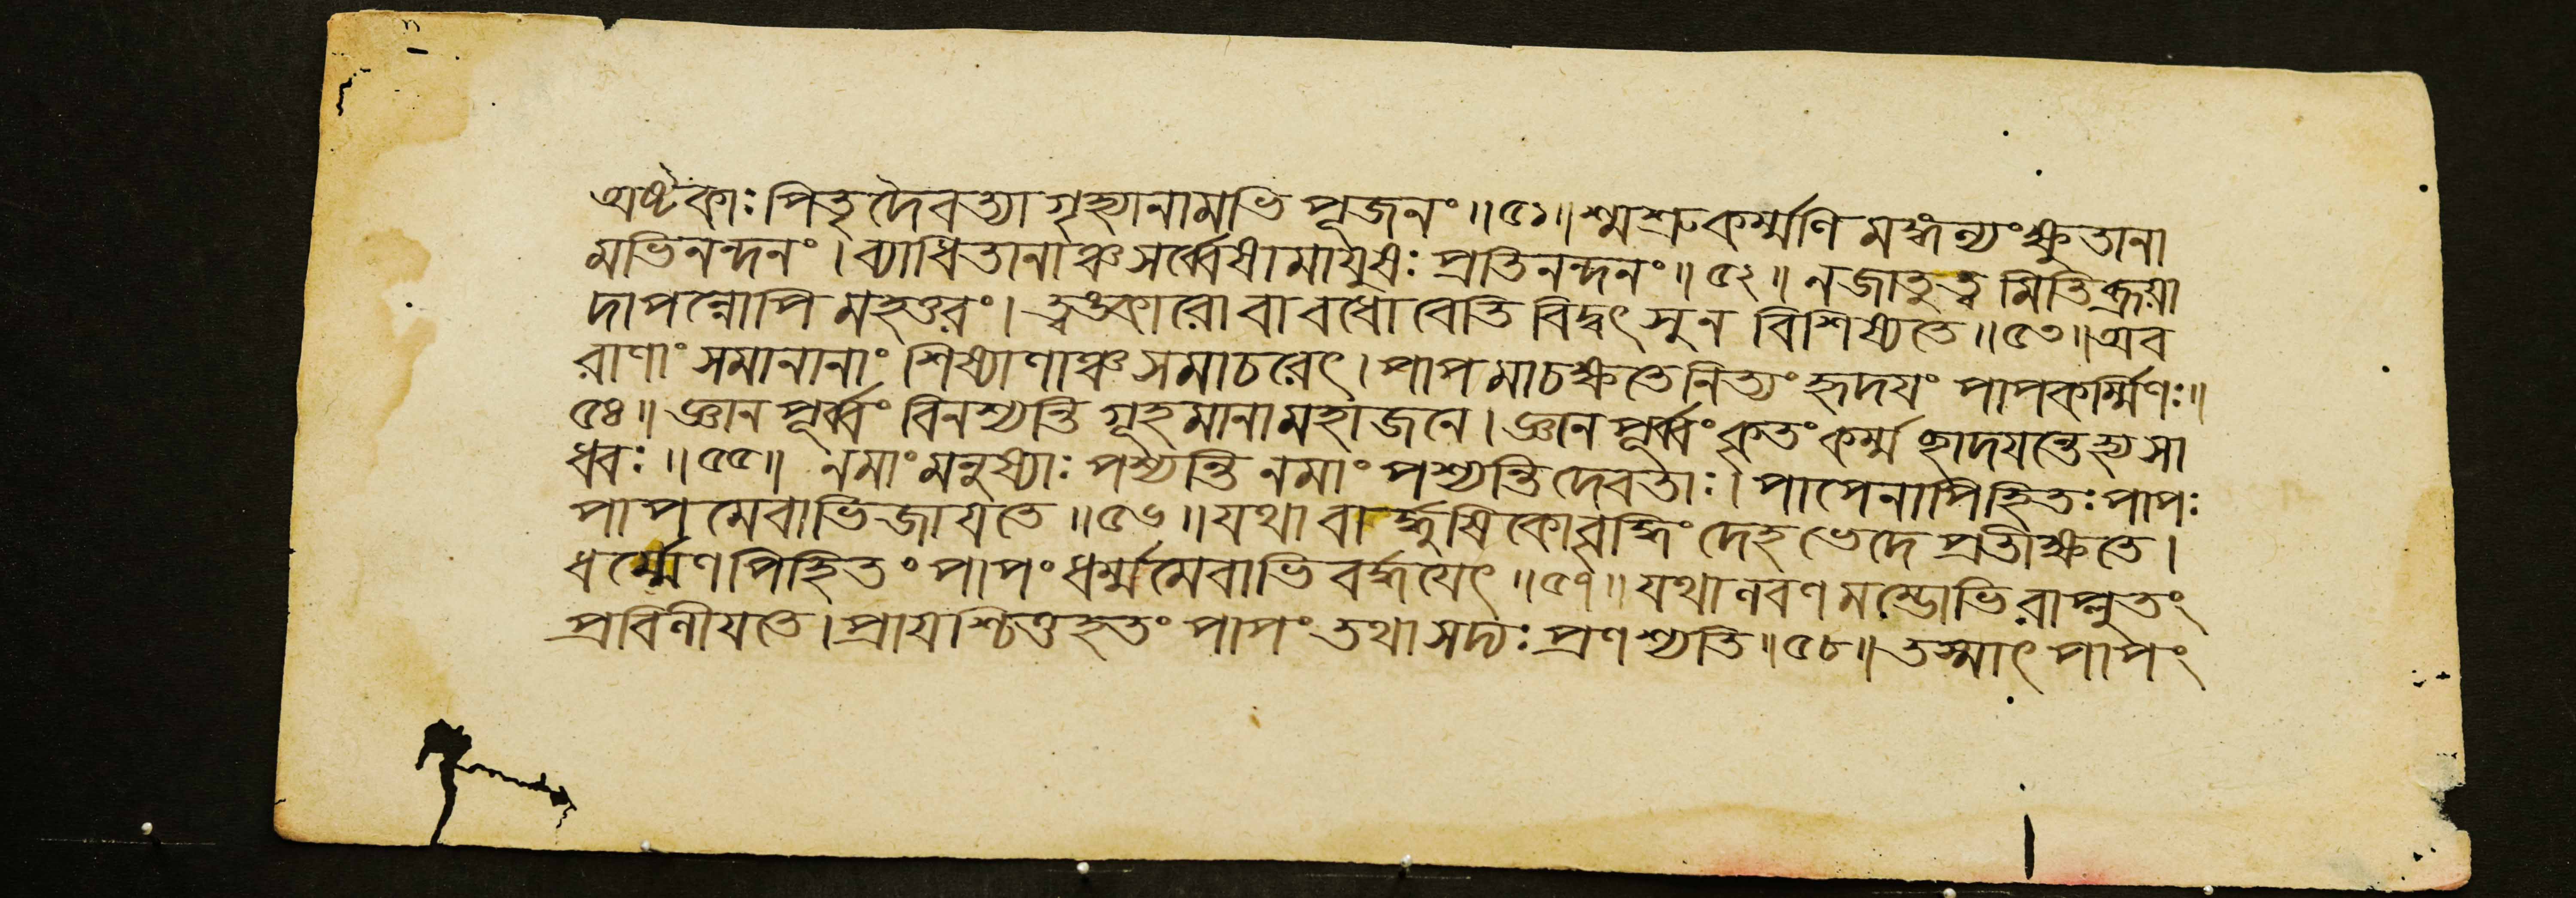 অষ্টকাঃ পিতৃদৈবত্যা গৃহ্যানামভি পূজনং॥৫১॥ শ্মশ্রুকর্ম্মণি মঙ্গল্যং ক্ষুতানা
মভিনন্দনং। ব্যাধিতানাঞ্চ সর্ব্বেষামাযুষঃ প্রতিনন্দনং॥৫২॥ নজাতুত্ব মিতিব্রূয়া
দাপন্নোপি মহত্তরং। ত্বঙ্কারো বা বধো বেতি বিদ্বৎসু ন বিশিষ্যতে॥৫৩॥ অব
রাণাং সমানানাং শিষ্যাণাঞ্চ সমাচরেৎ। পাপমাচক্ষতে নিত্যং হৃদযং পাপকর্ম্মিণঃ॥
৫৪॥ জ্ঞানপূর্ব্বং বিনশ্যন্তি গূহমানা মহাজনে। জ্ঞানপূর্ব্বং কৃতং কর্ম্ম ছাদযন্তেহ্যসা
ধবঃ॥৫৫॥ নমাং মনুষ্যাঃ পশ্যন্তি নমাং পশ্যন্তি দেবতাঃ। পাপেনাপিহিতঃ পাপঃ
পাপমেবাভিজাযতে॥৫৬॥ যথা বার্দ্ধুষিকো বৃদ্ধিং দেহভেদে প্রতীক্ষতে।
ধর্ম্মেণ পিহিতং পাপং ধর্ম্মমেবাভিবর্দ্ধযেৎ॥৫৭॥ যথা লবণমম্ভোভিরাপ্লুতং
প্রবিলীযতে। প্রাযশ্চিত্তহতং পাপং তথা সদ্যঃ প্রণশ্যতি॥৫৮॥ তস্মাৎ পাপং